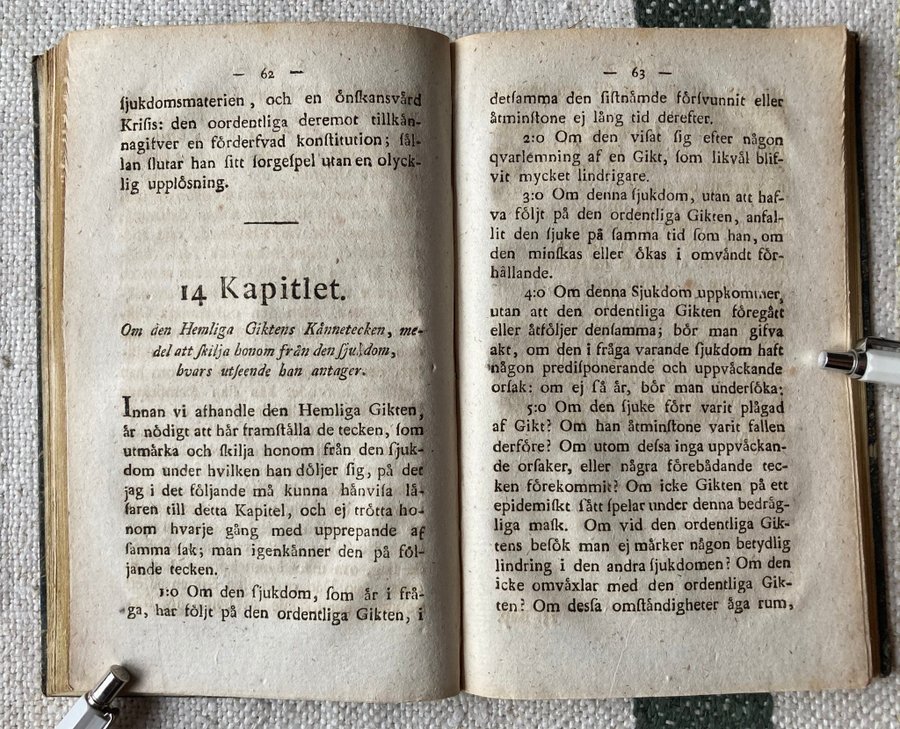 — 62 —
ſjukdomsmaterien, och en önſkansvård
Kriſis: den oordentliga deremot tillkån-
nagifver en förderfvad konſtitution; ſål-
lan ſlutar han ſitt ſorgeſpel utan en olyck-
lig upplöſning.
14 Kapitlet.
Om den Hemliga Giktens Kånnetecken, me-
del att ſkilja honom från den ſjukdom,
hvars utſeende han antager.
Innan vi afhandle den Hemliga Gikten,
år nödigt att hår framſtålla de tecken, ſom
utmårka och ſkilja honom från den ſjuk-
dom under hvilken han döljer ſig, på det
jag i det följande må kunna hånviſa lå-
ſaren till detta Kapitel, och ej trötta ho-
nom hvarje gång med upprepande af
ſamma ſak; man igenkånner den på föl-
jande tecken.
1:o Om den ſjukdom, ſom år i frå-
ga, har följt på den ordentliga Gikten, i
— 63 —
detſamma den ſiſtnåmde förſvunnit eller
åtminſtone ej lång tid derefter.
2:o Om den viſat ſig efter någon
qvarlemning af en Gikt, ſom likvål blif-
vit mycket lindrigare.
3:o Om denna ſjukdom, utan att haf-
va följt på den ordentliga Gikten, anfal-
lit den ſjuke på ſamma tid ſom han, om
den minſkas eller ökas i omvåndt för-
hållande.
4:o Om denna Sjukdom uppkommer,
utan att den ordentliga Gikten föregått
eller åtföljer denſamma; bör man gifva
akt, om den i fråga varande ſjukdom haft
någon prediſponerande och uppvåckande
orſak: om ej ſå år, bör man underſöka:
5:o Om den ſjuke förr varit plågad
af Gikt? Om han åtminſtone varit fallen
derföre? Om utom deſsa inga uppvåckan-
de orſaker, eller några förebådande tec-
ken förekommit? Om icke Gikten på ett
epidemiſkt ſått ſpelar under denna bedråg-
liga maſk. Om vid den ordentliga Gik-
tens beſök man ej mårker någon betydlig
lindring i den andra ſjukdomen? Om den
icke omvåxlar med den ordentliga Gik-
ten? Om deſsa omſtåndigheter åga rum,